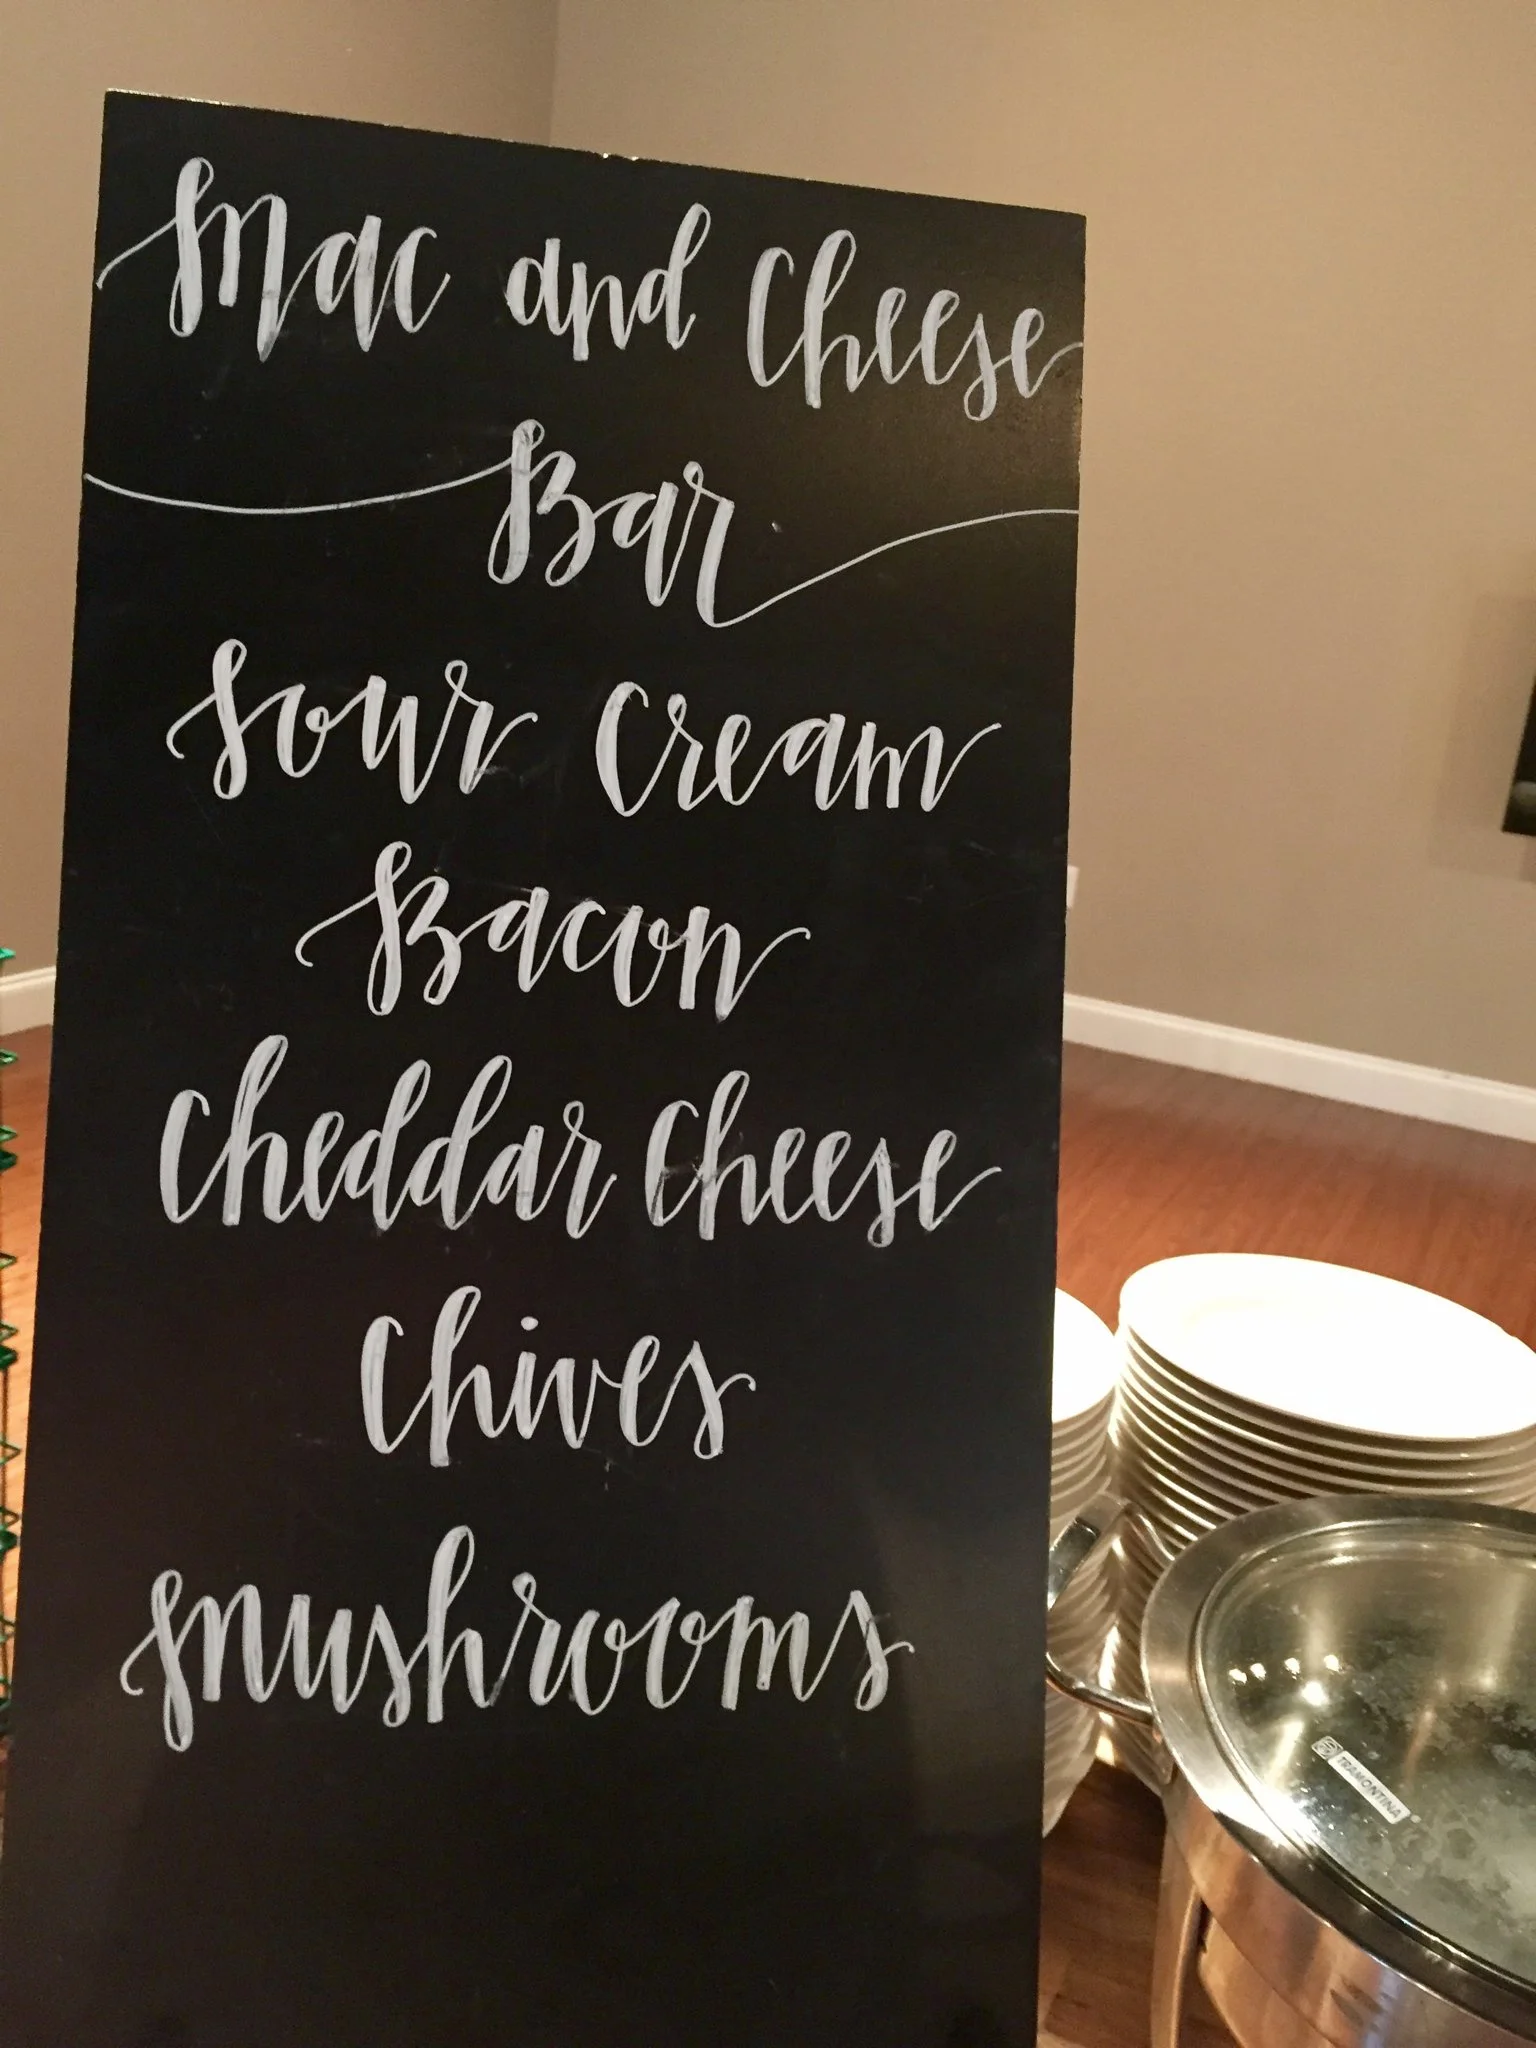 Mac and Cheese
Bar
Sour Cream
Bacon
Cheddar Cheese
Chives
Mushrooms
TRAMONTINA